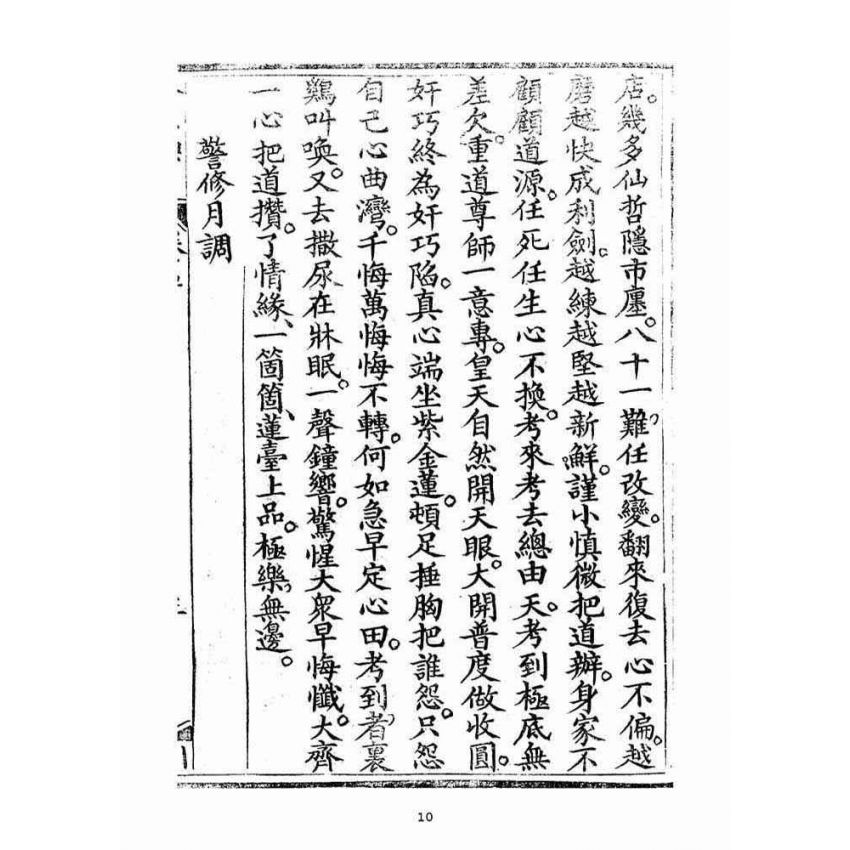 店。幾多仙哲隱市廛。八十一難任改變。翻來復去心不偏。越
磨越快成利劍。越練越堅越新鮮。謹小慎微把道辦。身家不
顧顧道源。任死任生心不換。考來考去總由天。考到極底無
差欠。重道尊師一意專。皇天自然開天眼。大開普度做收圓。
奸巧終為奸巧陷。真心端坐紫金蓮。頓足捶胸把誰怨。只怨
自己心曲灣。千悔萬悔悔不轉。何如急早定心田。考到者裏
鷄叫喚。又去撒尿在牀眠。一聲鐘響。驚惺大衆早悔懺。大齊
一心把道攢。了情緣、一箇箇、蓮臺上品。極樂無邊。
警修月調
10